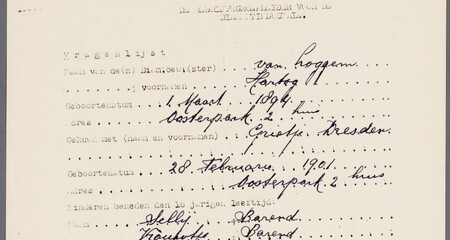 DE BEDRIJFSBEGELEIDER VOOR DE
DIAMANTINDUSTRIE.
Vragenlijst
Naam van de(n) Diam.bew.(ster) van Loggem
; voornamen Hartog
Geboortedatum 1 Maart 1894
Adres Oosterpark 2 huis
Gehuwd met (naam en voornamen) Grietje Dresden
Geboortedatum 28 Februari 1901
Adres Oosterpark 2 huis
Kinderen beneden den 16 jarigen leeftijd:
Naam Selly Barend
Barend